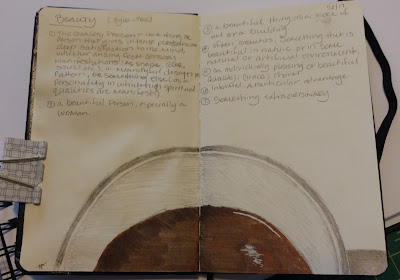 Beauty [byoo-tee]
① the quality present in a thing or
person that gives intense pleasure or
deep satisfaction to the mind,
whether arising from sensory
manifestations (as shape, color,
sound, etc.), a meaningful design or
pattern, or something else (as a
personality in which high spiritual
qualities are manifest).
② a beautiful person, especially a
woman.
③ a beautiful thing, as a work of
art or a building
④ often, beauties. something that is
beautiful in nature or in some
natural or artificial environment.
⑤ an individually pleasing or beautiful
quality; grace; charm
⑥ a particular advantage
⑦ something extraordinary